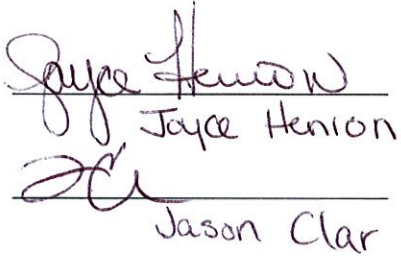 Joyce Henion
Joyce Henion
Jason Clar